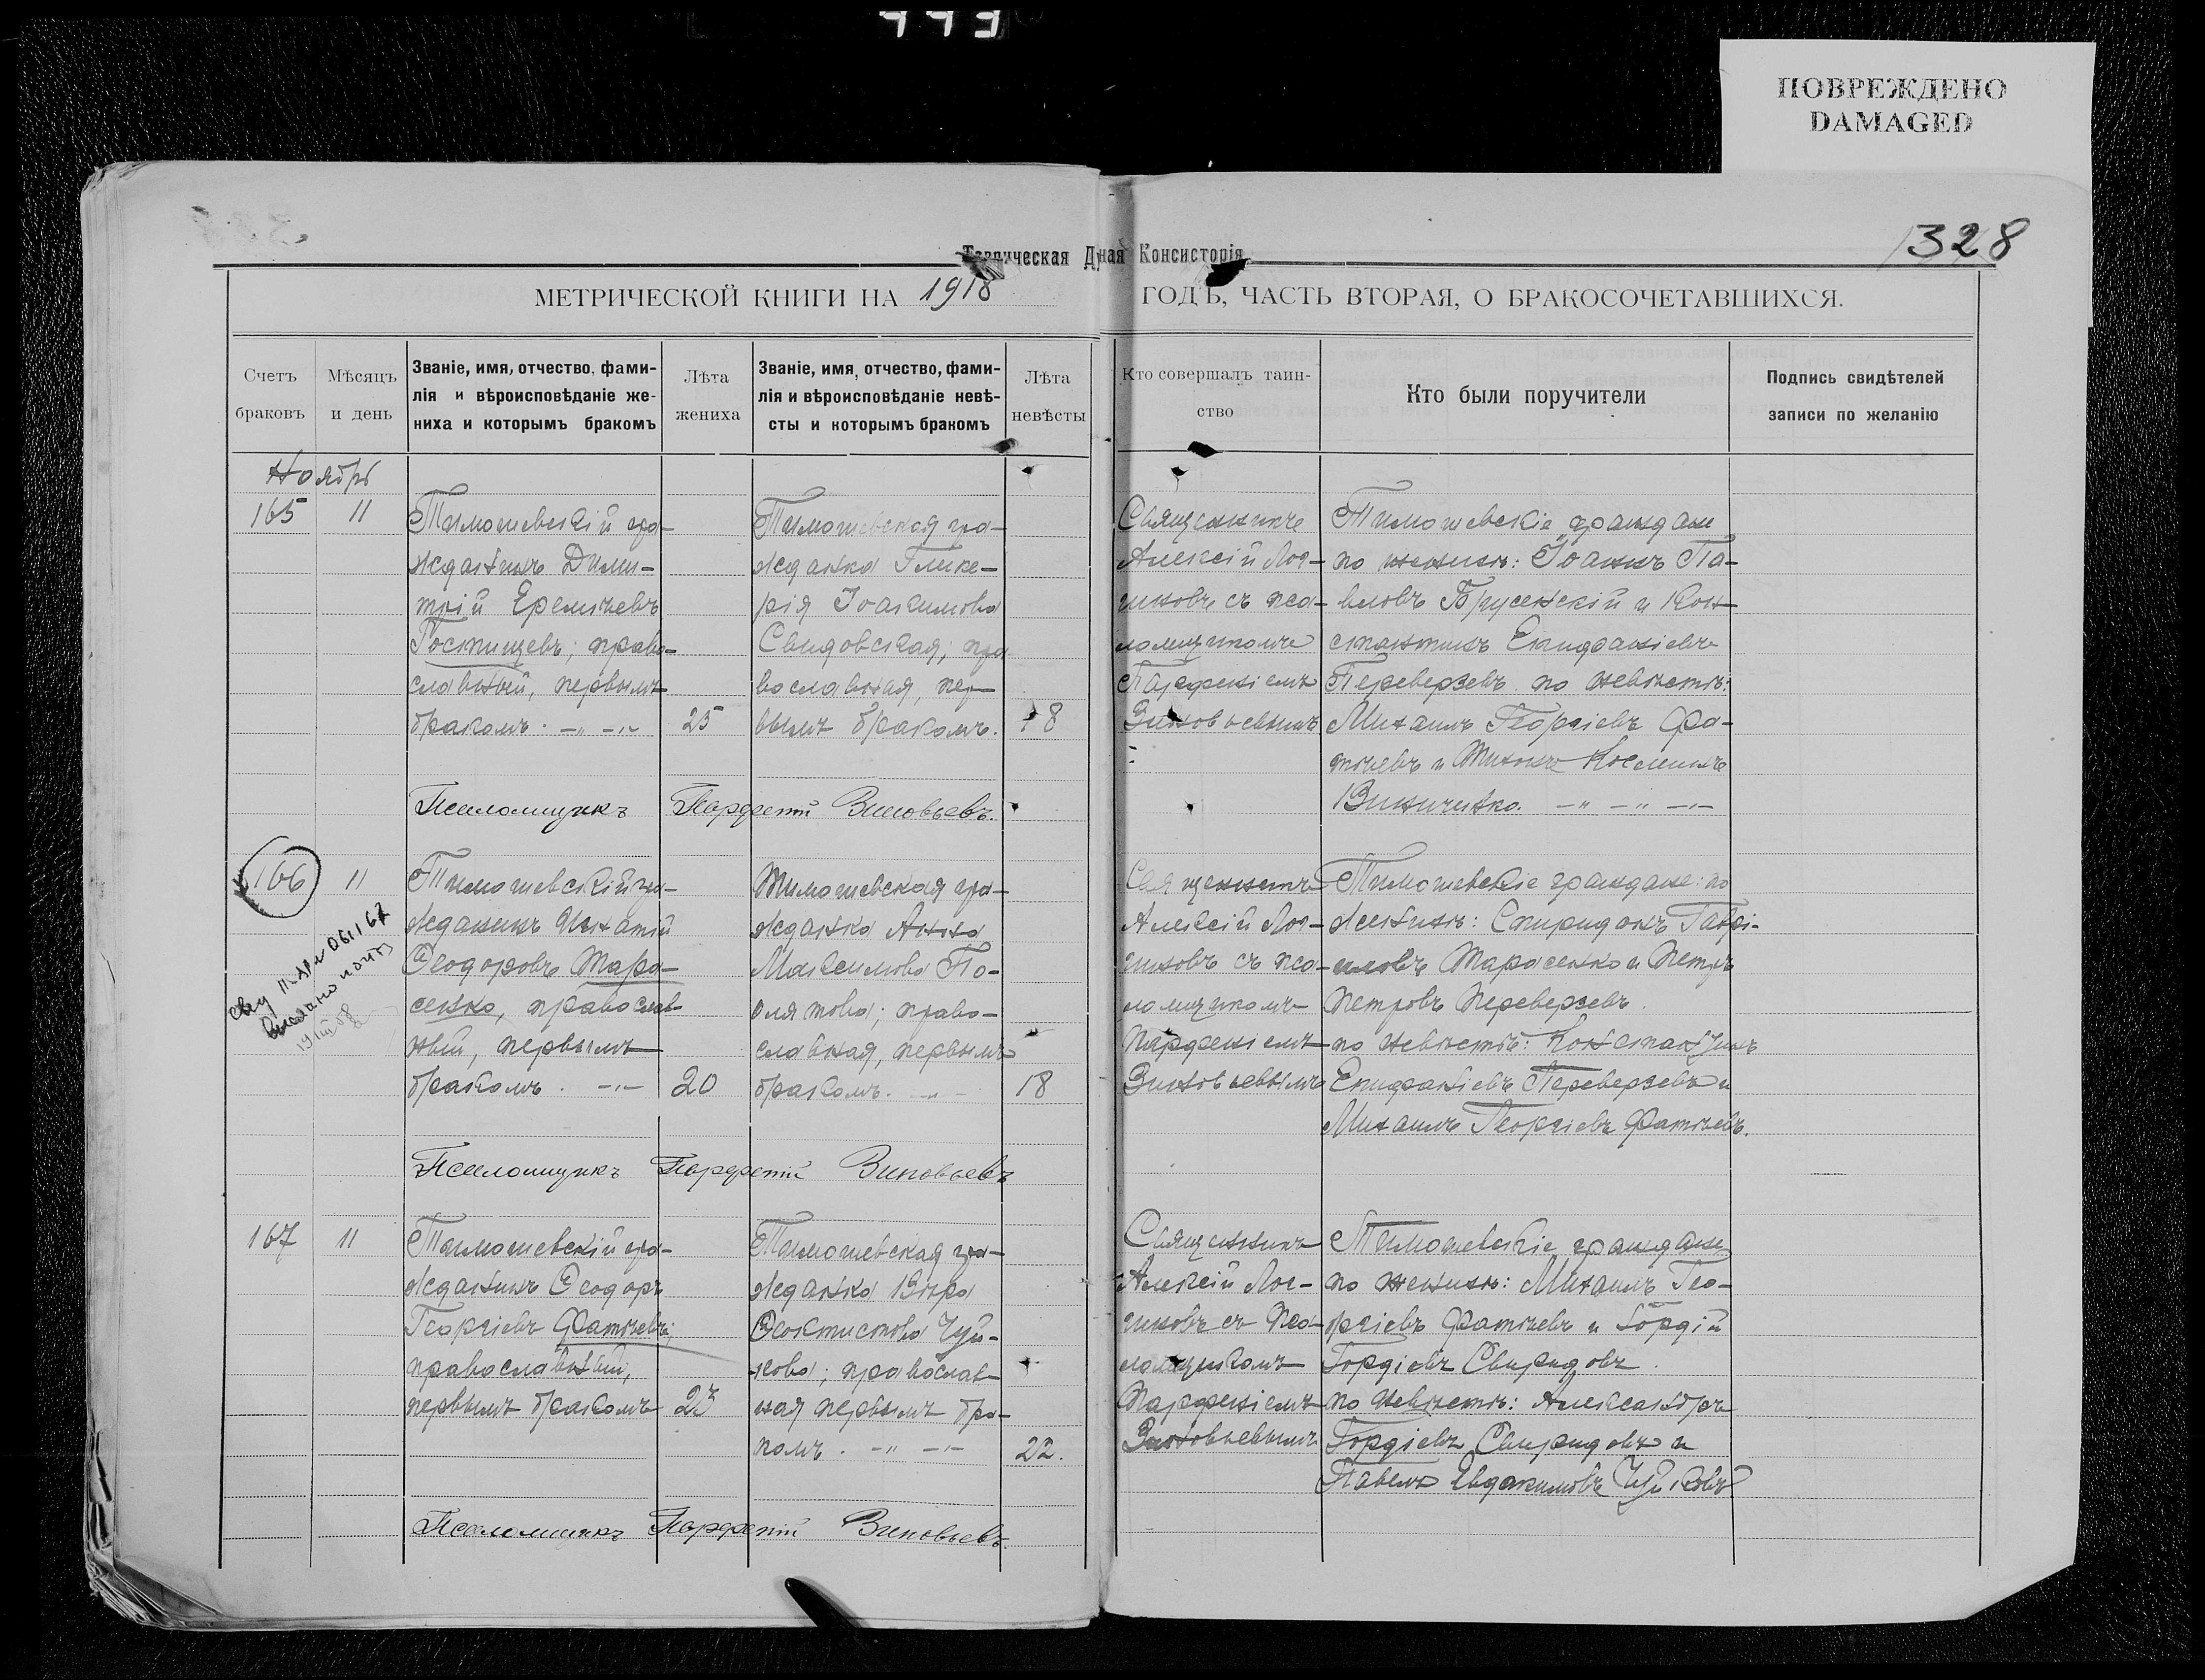 ПОВРЕЖДЕНО
DAMAGED
328
Таврическая Дная Консисторія
МЕТРИЧЕСКОЙ КНИГИ НА 1918 ГОДЪ, ЧАСТЬ ВТОРАЯ, О БРАКОСОЧЕТАВШИХСЯ.
Счетъ
браковъ
Мѣсяцъ
и день
Званіе, имя, отчество, фами-
лія и вѣроисповѣданіе же-
ниха и которымъ бракомъ
Лѣта
жениха
Званіе, имя, отчество, фами-
лія и вѣроисповѣданіе невѣ-
сты и которымъ бракомъ
Лѣта
невѣсты
Кто совершалъ таин-
ство
Кто были поручители
Подпись свидѣтелей
записи по желанію
Ноябрь
165
11
Тимошевскій гра-
жданинъ Дими-
трій Еремѣевъ
Гостищевъ; право-
славный, первымъ
бракомъ.
25
Тимошевская гра-
жданка Глике-
рія Іоакимова
Свидовская; пра
вославная, пер-
вымъ бракомъ.
18
Священникъ
Алексій Лог-
иновъ съ пса-
ломщикомъ
Парфеніемъ
Зиновьевымъ
Тимошевскіе граждане
по женихѣ: Іоаннъ Па-
вловъ Брусенскій и Кон-
стантинъ Епифаніевъ
Переверзевъ по невѣстѣ:
Михаилъ Георгіевъ Фа-
тѣевъ и Тихонъ Косминъ
Винниченко.
Псаломщикъ Парфеній Зиновьевъ.
166
11
Тимошевскій гра-
жданинъ Игнатій
Ѳеодоровъ Тара-
сенко, православ-
ный, первымъ
бракомъ.
20
Тимошевская гра-
жданка Анна
Максимова По-
лятова; право-
славная, первымъ
бракомъ.
18
Священникъ
Алексій Лог-
иновъ съ пса-
ломщикомъ
Парфеніемъ
Зиновьевымъ
Тимошевскіе граждане: по
женихѣ: Спиридонъ Гаврі-
иловъ Тарасенко и Петръ
Петровъ Переверзевъ.
по невѣстѣ: Константинъ
Епифаніевъ Переверзевъ и
Михаилъ Георгіевъ Фатѣевъ.
Псаломщикъ Парфеній Зиновьевъ
167
11
Тимошевскій гра-
жданинъ Ѳеодоръ
Георгіевъ Фатѣевъ;
православный,
первымъ бракомъ
23
Тимошевская гра-
жданка Вѣра
Ѳеоктистова Чуй-
кова; православ-
ная первымъ бра-
комъ.
22.
Священникъ
Алексій Лог-
иновъ съ Пса-
ломщикомъ
Парфеніемъ
Зиновьевымъ
Тимошевскіе граждане
по женихѣ: Михаилъ Гео-
ргіевъ Фатѣевъ и Гордій
Гордіевъ Свиридовъ.
по невѣстѣ: Александръ
Гордіевъ Свиридовъ и
Павелъ Евдокимовъ Чуйковъ
Псаломщикъ Парфеній Зиновьевъ.